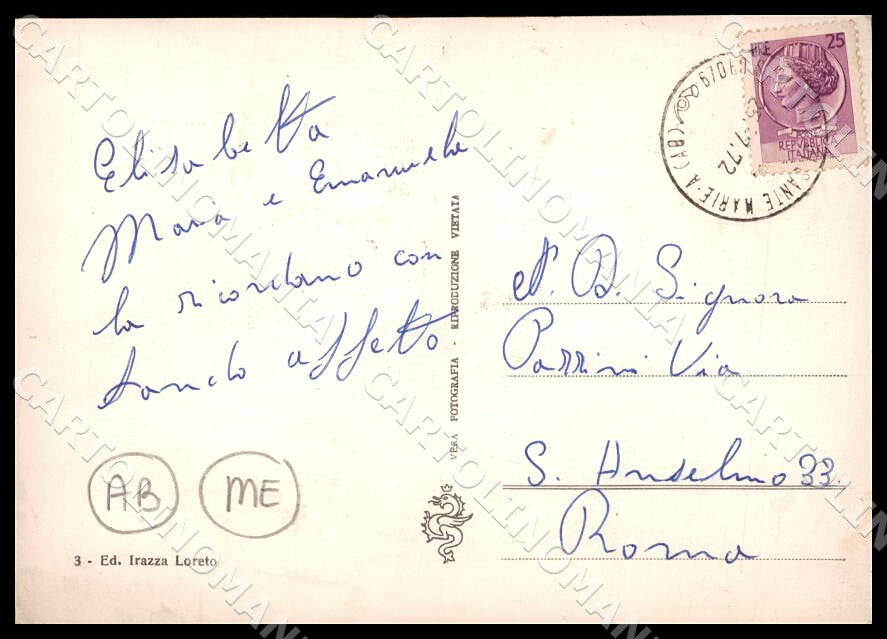 Elisabetta
Maria e Emanuela
la ricordano con
tando affetto
AB
ME
3 - Ed. Irazza Loreto
VERA FOTOGRAFIA - RIPRODUZIONE VIETATA
LIRE 25
REPVBBLICA
ITALIANA
67060
SANTE MARIE
.72
N. D. Signora
Parrini Via
S. Anselmo 33
Roma
CARTOLINOMANIA